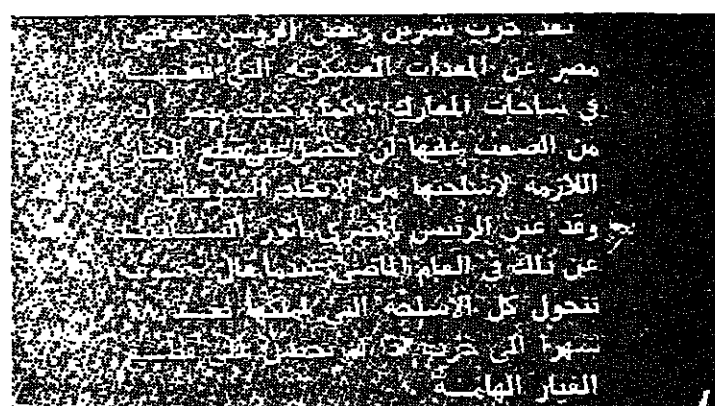 بعد حرب تشرين رفض الروس تعويض
مصر عن المعدات العسكرية التي
في ساحات المعارك كما وجدت مصر ان
من الصعب عليها ان تحصل على قطع الغيار
اللازمة لاسلحتها من الاتحاد السوفياتي
وقد عبر الرئيس المصري انور السادات
عن ذلك في العام الماضي عندما قال سوف
تتحول كل الاسلحة التي لدينا بعد ١٨
شهرا الى خردة ان لم نحصل على قطع
الغيار الهامة